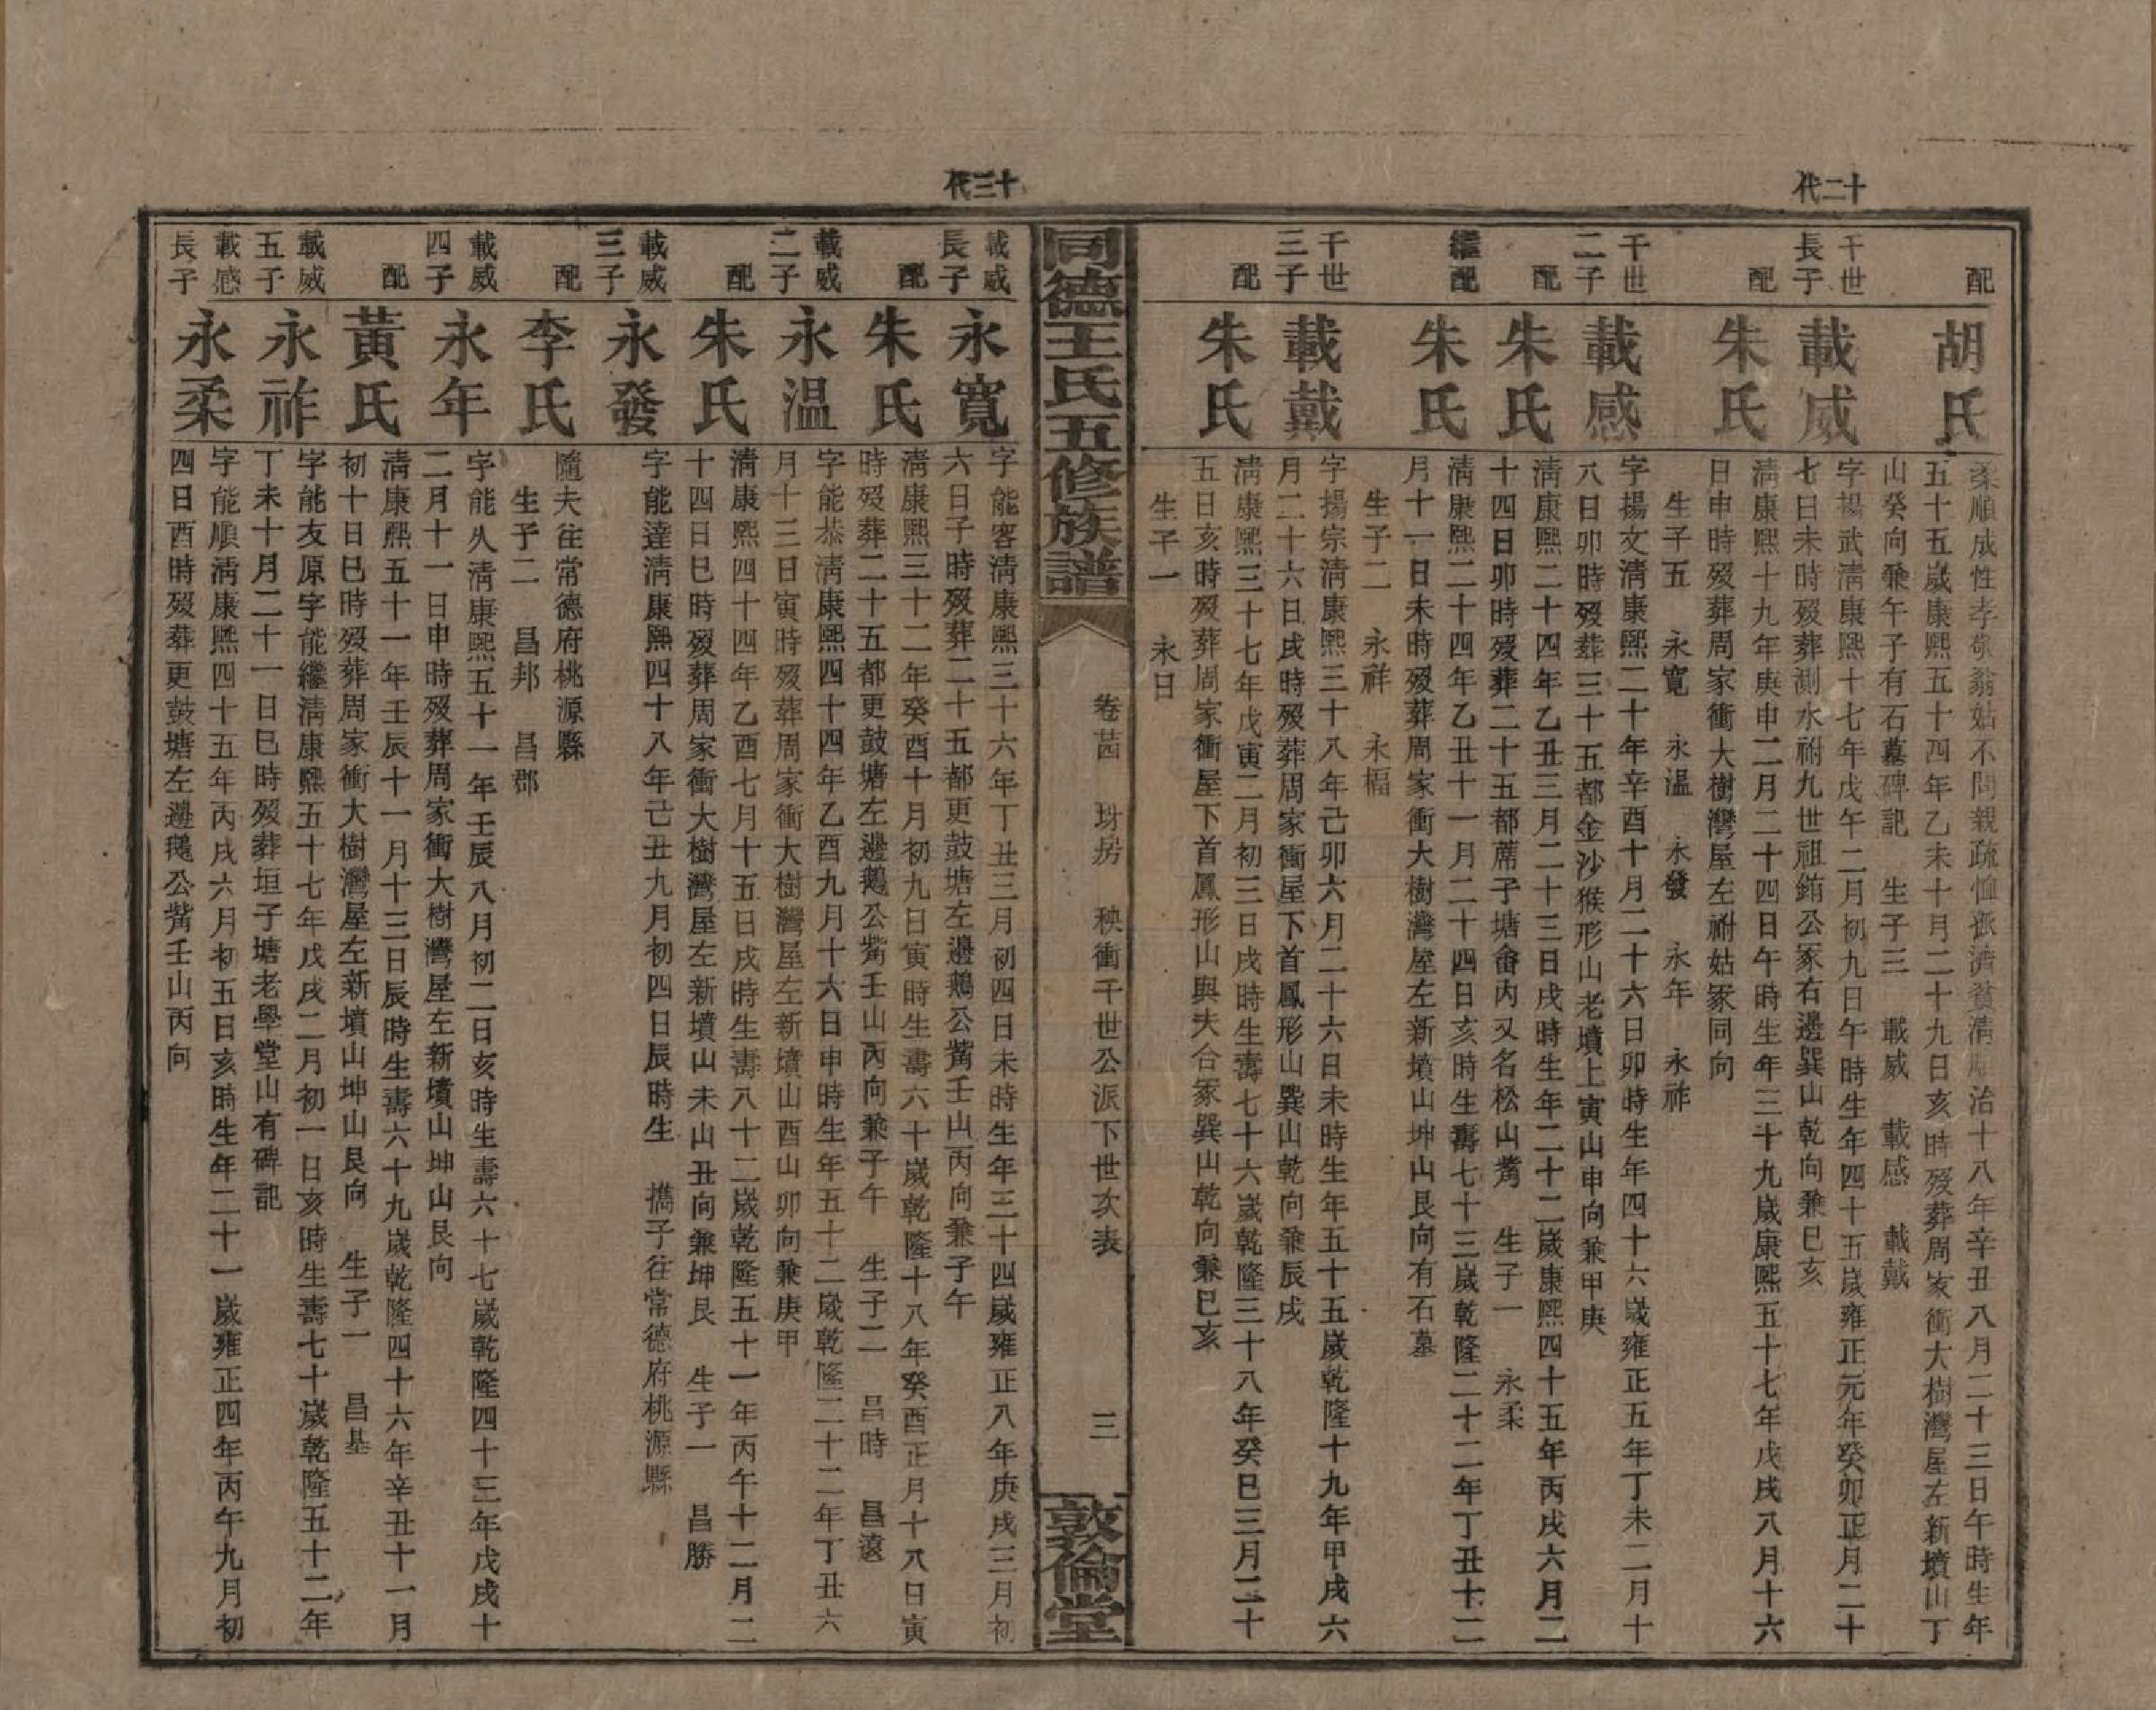 十二代
配
胡氏
柔順成性孝敬翁姑不問親疏恤孤濟貧清順治十八年辛丑八月二十三日午時生年
五十五歲康熙五十四年乙未十月二十九日亥時歿葬周家衝大樹灣屋左新墳山丁
山癸向兼午子有石墓碑記 生子三 載威 載感 載戴
千世長子
載威
字揚武清康熙十七年戊午二月初九日午時生年四十五歲雍正元年癸卯正月二十
七日未時歿葬測水祔九世祖銪公冢右邊巽山乾向兼巳亥
配
朱氏
清康熙十九年庚申二月二十四日午時生年三十九歲康熙五十七年戊戌八月十六
日申時歿葬周家衝大樹灣屋左祔姑冢同向
生子五 永寬 永溫 永發 永年 永祚
千世二子
載感
字揚文清康熙二十年辛酉十月二十六日卯時生年四十六歲雍正五年丁未二月十
八日卯時歿葬三十五都金沙猴形山老墳上寅山申向兼甲庚
配
朱氏
清康熙二十四年乙丑三月二十三日戌時生年二十二歲康熙四十五年丙戌六月二
十四日卯時歿葬二十五都蓆子塘畲內又名松山嘴 生子一 永柔
繼配
朱氏
清康熙二十四年乙丑十一月二十四日亥時生壽七十三歲乾隆二十二年丁丑十二
月十一日未時歿葬周家衝大樹灣屋左新墳山坤山艮向有石墓
生子二 永祥 永福
千世三子
載戴
字揚宗清康熙三十八年己卯六月二十六日未時生年五十五歲乾隆十九年甲戌六
月二十六日戌時歿葬周家衝屋下首鳳形山巽山乾向兼辰戌
配
朱氏
清康熙三十七年戊寅二月初三日戌時生壽七十六歲乾隆三十八年癸巳三月二十
五日亥時歿葬周家衝屋下首鳳形山與夫合冢巽山乾向兼巳亥
生子一 永日
同德王氏五修族譜
卷茴 玣房 秧衝千世公派下世次表
三
敦倫堂
十三代
載威長子
永寬
字能容清康熙三十六年丁丑三月初四日未時生年三十四歲雍正八年庚戌三月初
六日子時歿葬二十五都更鼓塘左邊鵝公嘴壬山丙向兼子午
配
朱氏
清康熙三十二年癸酉十月初九日寅時生壽六十歲乾隆十八年癸酉正月十八日寅
時歿葬二十五都更鼓塘左邊鵝公嘴壬山丙向兼子午 生子二 昌時 昌遠
載威二子
永溫
字能恭清康熙四十四年乙酉九月十六日申時生年五十二歲乾隆二十二年丁丑六
月十三日寅時歿葬周家衝大樹灣屋左新墳山酉山卯向兼庚甲
配
朱氏
清康熙四十四年乙酉七月十五日戌時生壽八十二歲乾隆五十一年丙午十二月二
十四日巳時歿葬周家衝大樹灣屋左新墳山未山丑向兼坤艮 生子一 昌勝
載威三子
永發
字能達清康熙四十八年己丑九月初四日辰時生 攜子往常德府桃源縣
配
李氏
隨夫往常德府桃源縣
生子二 昌邦 昌郡
載威四子
永年
字能久清康熙五十一年壬辰八月初二日亥時生壽六十七歲乾隆四十三年戊戌十
二月十一日申時歿葬周家衝大樹灣屋左新墳山坤山艮向
配
黃氏
清康熙五十一年壬辰十一月十三日辰時生壽六十九歲乾隆四十六年辛丑十一月
初十日巳時歿葬周家衝大樹灣屋左新墳山坤山艮向 生子一 昌基
載威五子
永祚
字能友原字能繼清康熙五十七年戊戌二月初一日亥時生壽七十歲乾隆五十二年
丁未十月二十一日巳時歿葬垣子塘老學堂山有碑記
載感長子
永柔
字能順清康熙四十五年丙戌六月初五日亥時生年二十一歲雍正四年丙午九月初
四日酉時歿葬更鼓塘左邊鵝公嘴壬山丙向